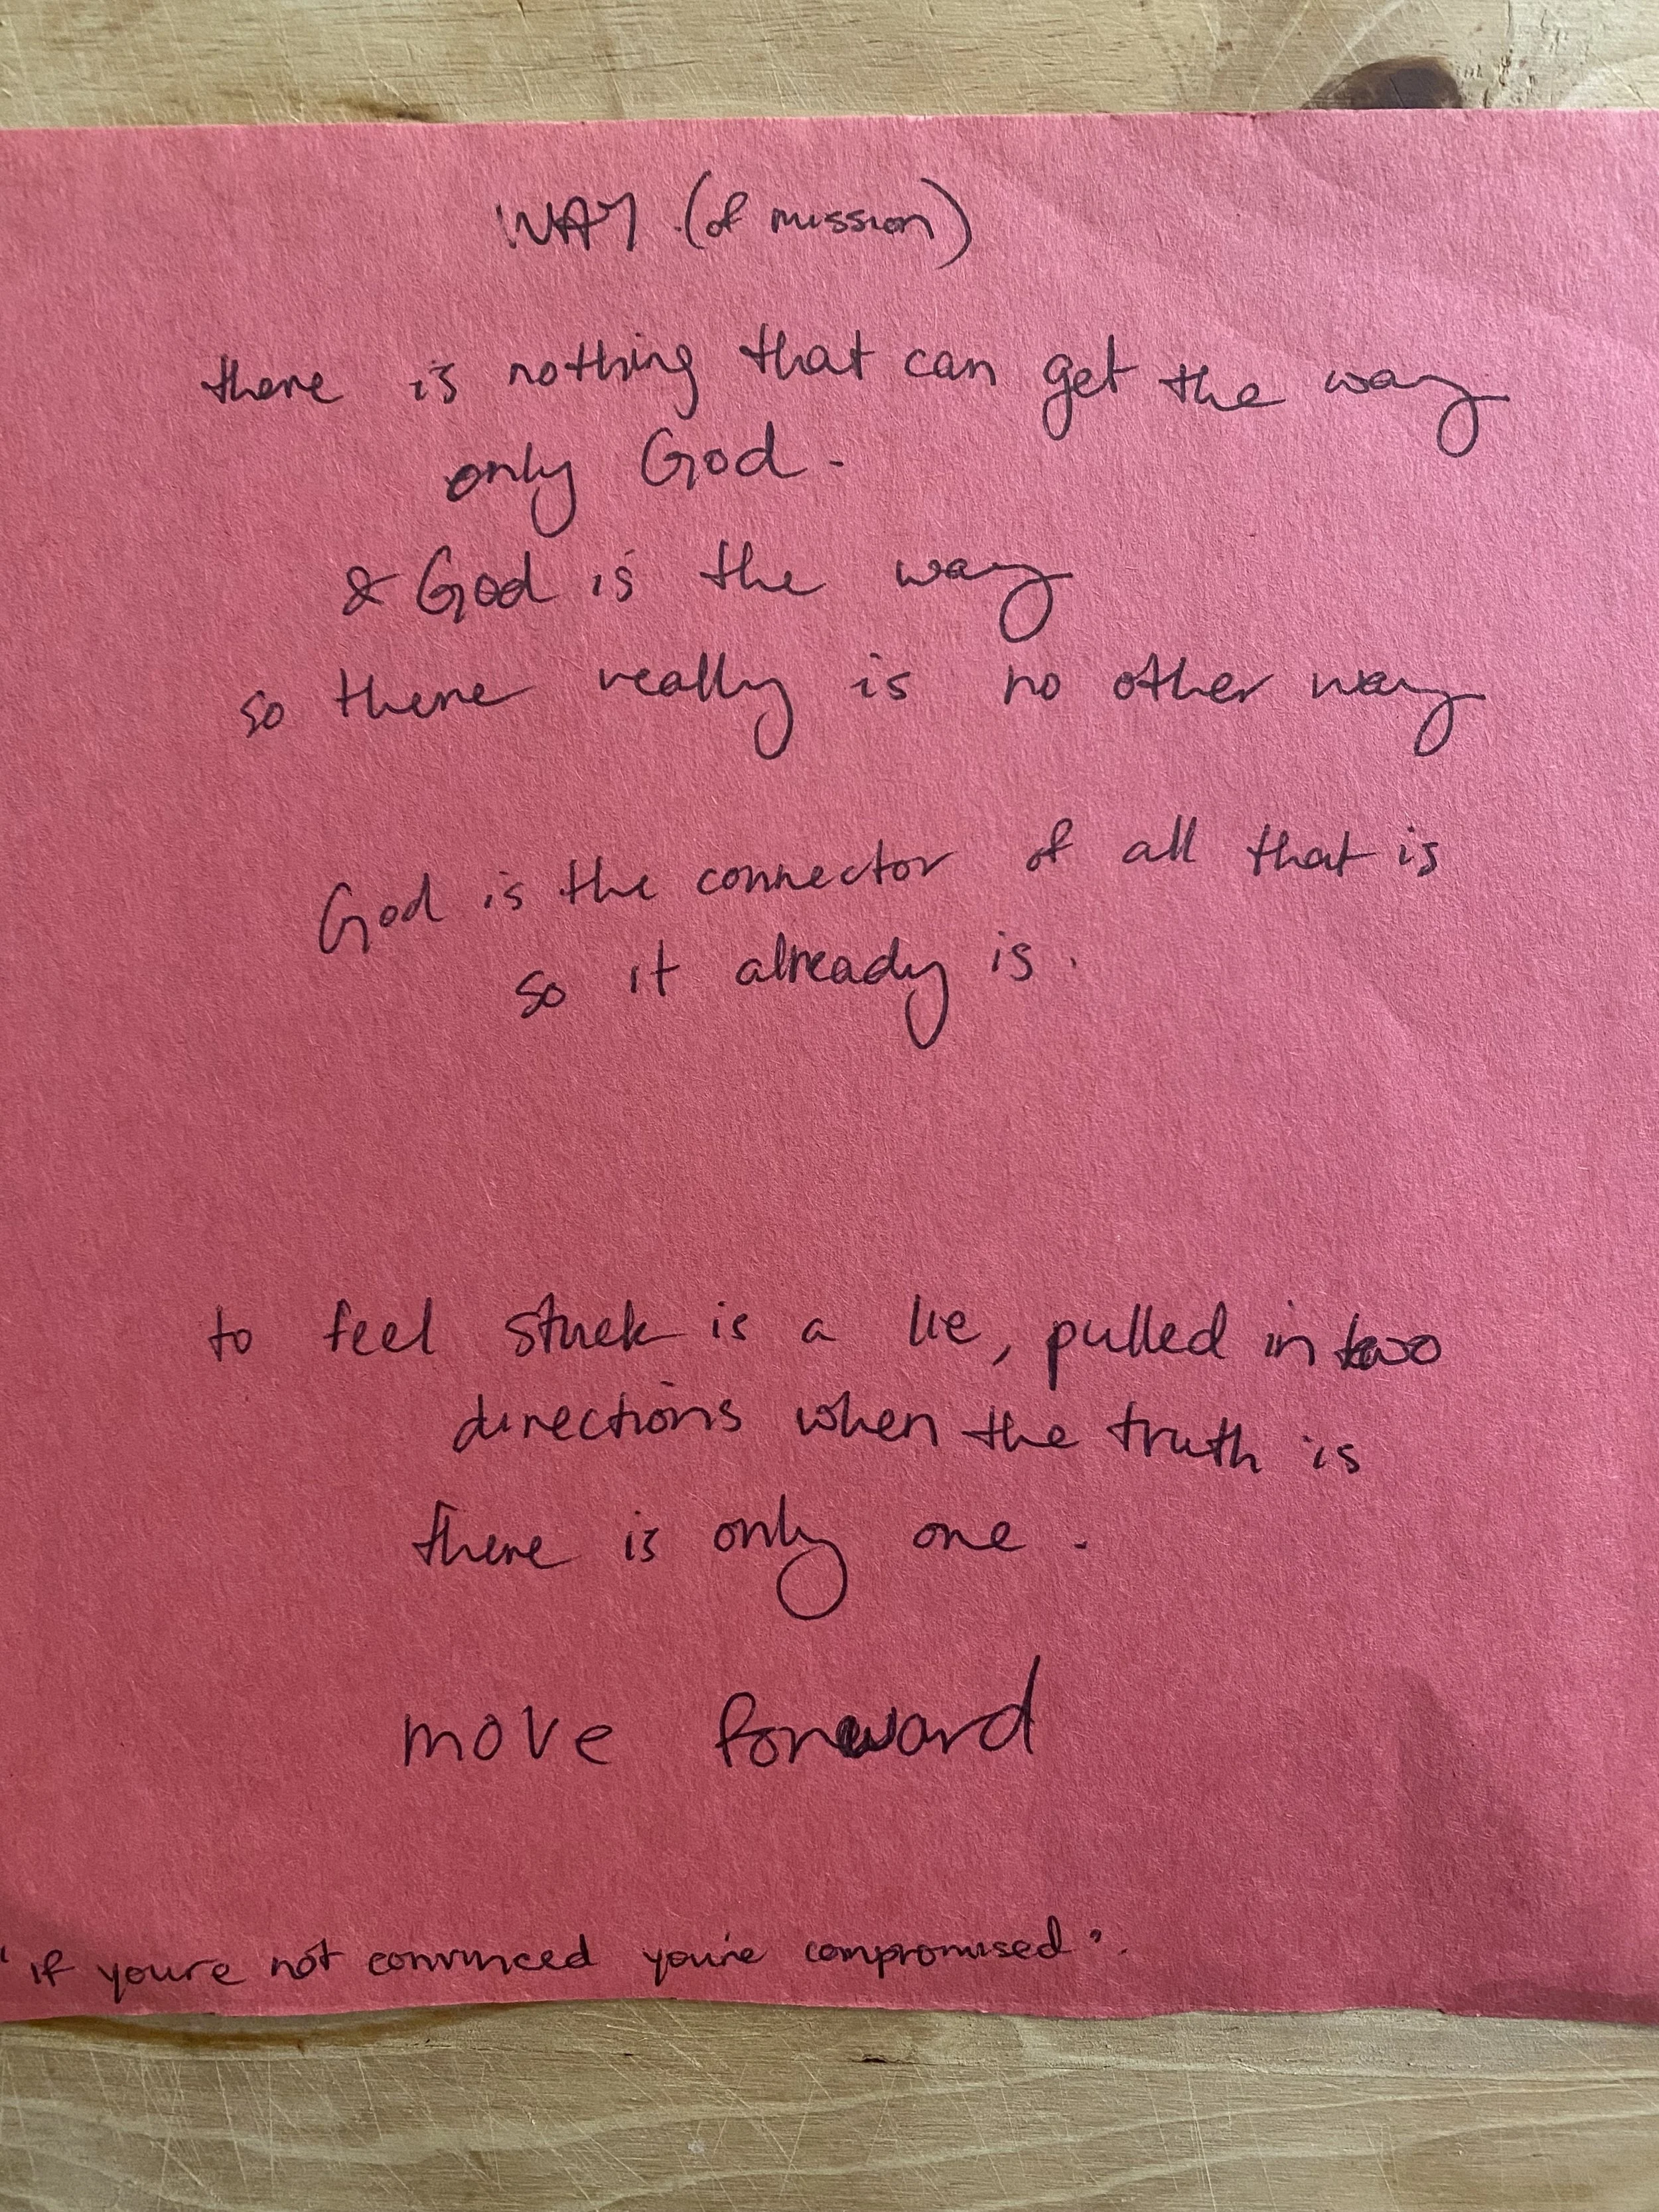 WAY (of mission)
there is nothing that can get the way
only God.
& God is the way
so there really is no other way
God is the connector of all that is
so it already is.
to feel stuck is a lie, pulled in two
directions when the truth is
there is only one.
move forward
"if youre not convinced you're compromised".